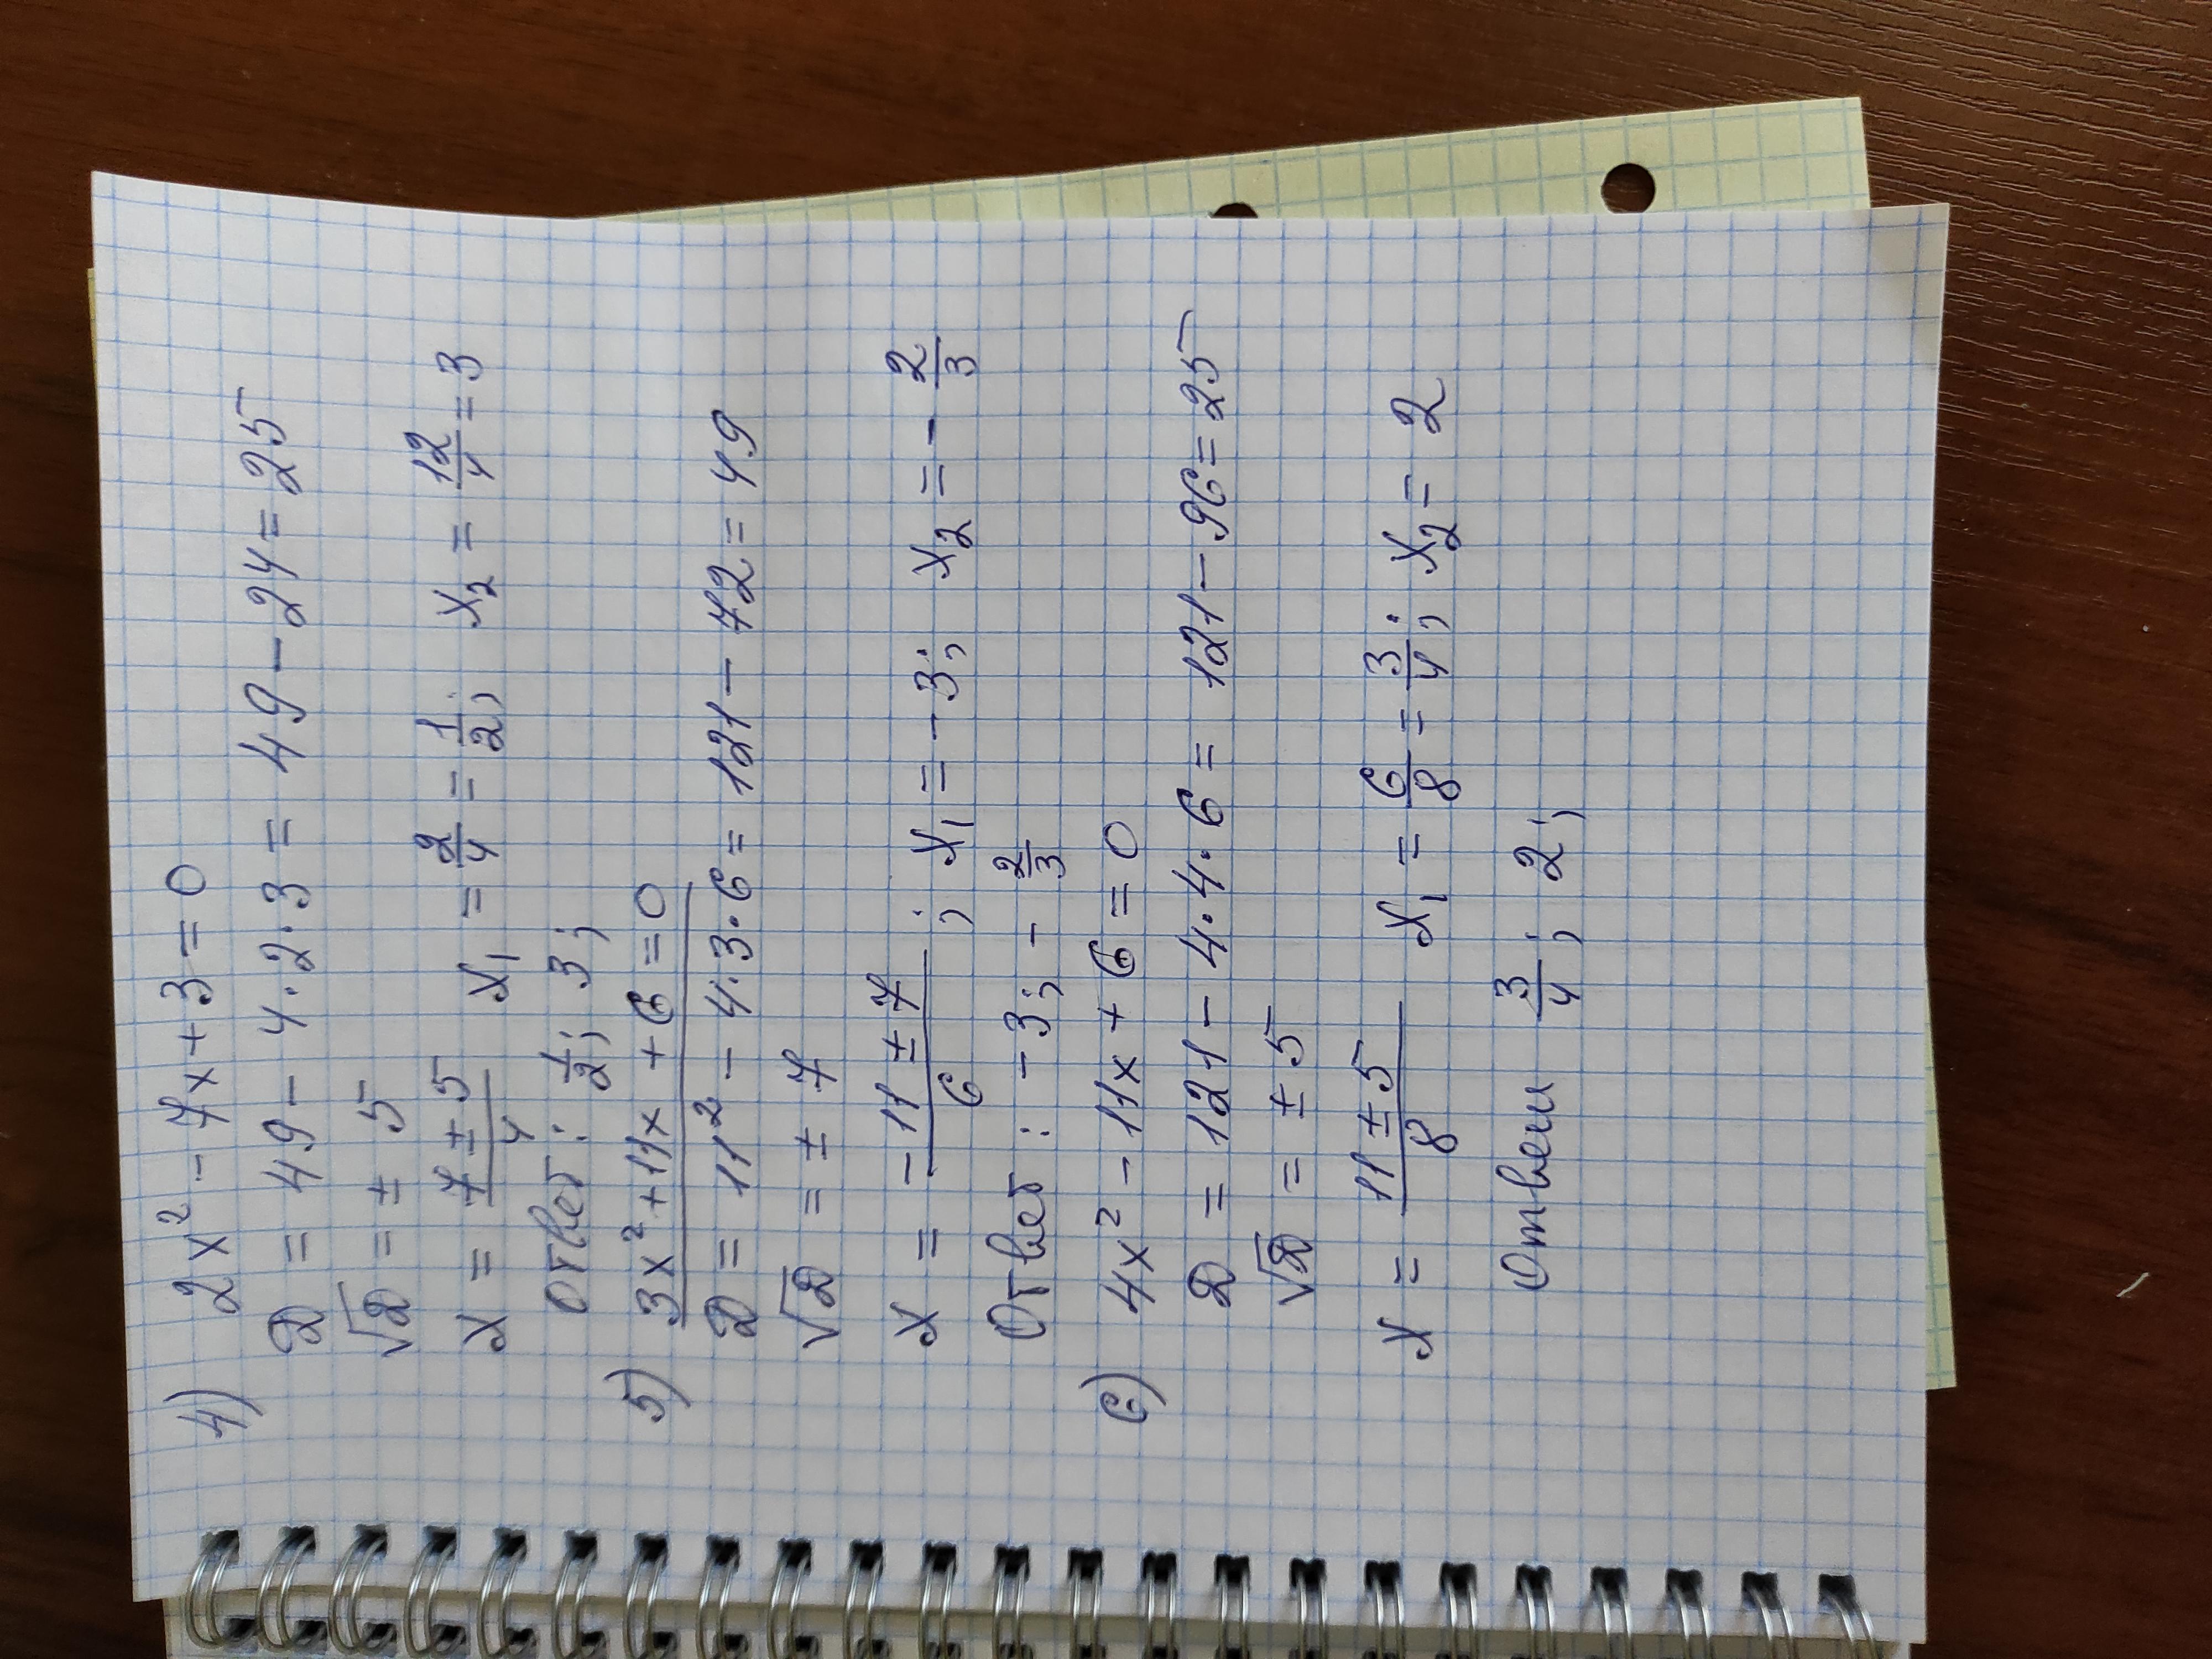 4) 2x² - 7x + 3 = 0
D = 49 - 4·2·3 = 49 - 24 = 25
√D = ± 5
x = (7 ± 5)/4 x₁ = 2/4 = 1/2; x₂ = 12/4 = 3
Ответ: 1/2; 3;
5) 3x² + 11x + 6 = 0
D = 11² - 4·3·6 = 121 - 72 = 49
√D = ± 7
x = (-11 ± 7)/6; x₁ = -3; x₂ = - 2/3
Ответ: -3; - 2/3
6) 4x² - 11x + 6 = 0
D = 121 - 4·4·6 = 121 - 96 = 25
√D = ± 5
x = (11 ± 5)/8 x₁ = 6/8 = 3/4; x₂ = 2
Ответ 3/4; 2;